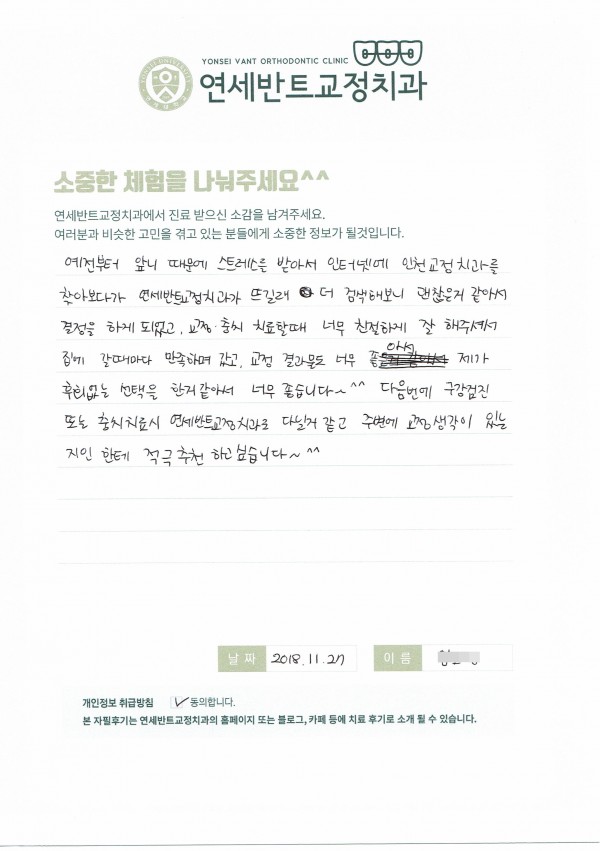 YONSEI VANT ORTHODONTIC CLINIC
연세반트교정치과
소중한 체험을 나눠주세요^^
연세반트교정치과에서 진료 받으신 소감을 남겨주세요.
여러분과 비슷한 고민을 겪고 있는 분들에게 소중한 정보가 될것입니다.
예전부터 앞니 때문에 스트레스를 받아서 인터넷에 인천교정치과를
찾아보다가 연세반트교정치과가 뜨길래 더 검색해보니 괜찮은거 같아서
결정을 하게 되었고, 교정·충치 치료할때 너무 친절하게 잘 해주셔서
집에 갈때마다 만족하며 갔고, 교정 결과물도 너무 좋아서 제가
후회없는 선택을 한거같아서 너무 좋습니다~^^ 다음번에 구강검진
또는 충치치료시 연세반트교정치과로 다닐거 같고 주변에 교정생각이 있는
지인 한테 적극추천 하고싶습니다~^^
날 짜 2018.11.27 이 름
개인정보 취급방침 ✓동의합니다.
본 자필후기는 연세반트교정치과의 홈페이지 또는 블로그, 카페 등에 치료 후기로 소개 될 수 있습니다.